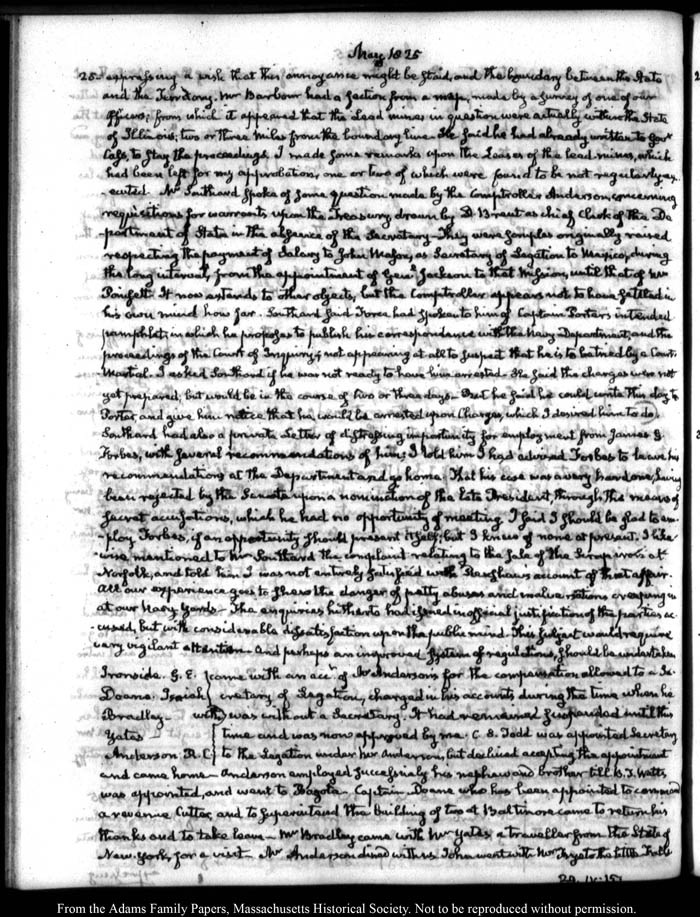 May 1825
25- expressing a wish that this annoyance might be staid, and the boundary between the State
and the Territory. Mr Barbour had a section from a map, made by a survey of one of our
Officers; from which it appeared that the Lead mines in question were actually within the State
of Illinois; two or three miles from the boundary line. He said he had already written to Govr
Cass, to stay the proceedings. I made some remarks upon the Leases of the lead mines, which
had been left for my approbation, one or two of which were found to be not regularly ex-
-ecuted. Mr Southard spoke of some question made by the Comptroller Anderson, concerning
requisitions for warrants upon the Treasury drawn by D. Brent as chief Clerk of the De
partment of State in the absence of the Secretary. They were scruples originally raised
respecting the payment of Salary to John Mason, as Secretary of Legation to Mexico, during
the long interval, from the appointment of Genl Jackson to that Mission, until that of Mr
Poinsett. It now extends to other objects, but the Comptroller appears not to have settled in
his own mind how far. Southard said Force had spoken to him of Captain Porter's intended
pamphlet, in which he proposes to publish his correspondence with the Navy Department, and the
proceedings of the Court of Inquiry; not appearing at all to suspect that he is to be tried by a Court
Martial. I asked Southard if he was not ready to have him arrested. He said the charges were not
yet prepared, but would be in the course of two or three days. But he said he could write this day to
Porter, and give him notice that he would be arrested upon Charges, which I desired him to do.
Southard had also a private Letter of distressing importunity for employment from James G.
Forbes, with several recommendations of him; I told him I had advised Forbes to leave his
recommendations at the Department and go home. That his case was a very hard one, having
been rejected by the Senate upon a nomination of the late President, through the means of
secret accusations, which he had no opportunity of meeting. I said I should be glad to em-
-ploy Forbes, if an opportunity should present itself; but I knew of none at present. I like-
wise mentioned to Mr Southard the complaint relating to the sale of the Scrap iron at
Norfolk, and told him I was not entirely satisfied with account of that affair.
All our experience goes to shew the danger of petty abuses and malversations creeping in
at our Navy Yards- The enquiries hitherto had issued in official justification of the parties ac-
-cused, but with considerable dissatisfaction upon the public mind. This subject would require
very vigilant attention- And perhaps an improved system of regulations, should be undertaken
Ironside. G. E. came with an acct of Mr Anderson's for the compensation allowed to a Se-
Doane. Isaiah cretary of Legation, charged in his accounts during the time when he
Bradley- with was without a Secretary. It had remained suspended until this
Yates time and was now approved by me. C. S. Todd was appointed Secretary
Anderson. R. C to the Legation under Mr Anderson, but declined accepting the appointment
and came home- Anderson employed successively his nephew and brother till B. T. Watts
was appointed, and went to Bogota- Captain Doane who has been appointed to command
a revenue Cutter, and to superintend the building of two at Baltimore came to return his
thanks and to take leave- Mr Bradley came with Mr Yates, a traveller from the State of
New-York, for a visit- Mr Anderson dined with us. John went with Mr to the little Falls
From the Adams Family Papers, Massachusetts Historical Society. Not to be reproduced without permission.